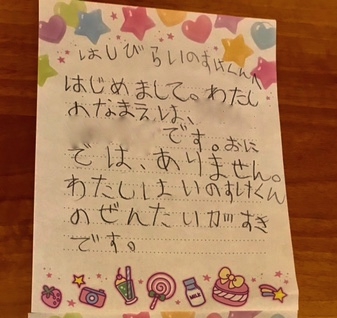 はしびらいのすけくんへ
はじめまして。わたし
のなまえは、
です。おに
では、ありません。
わたしはいのすけくん
のぜんたいがすき
です。
MILK